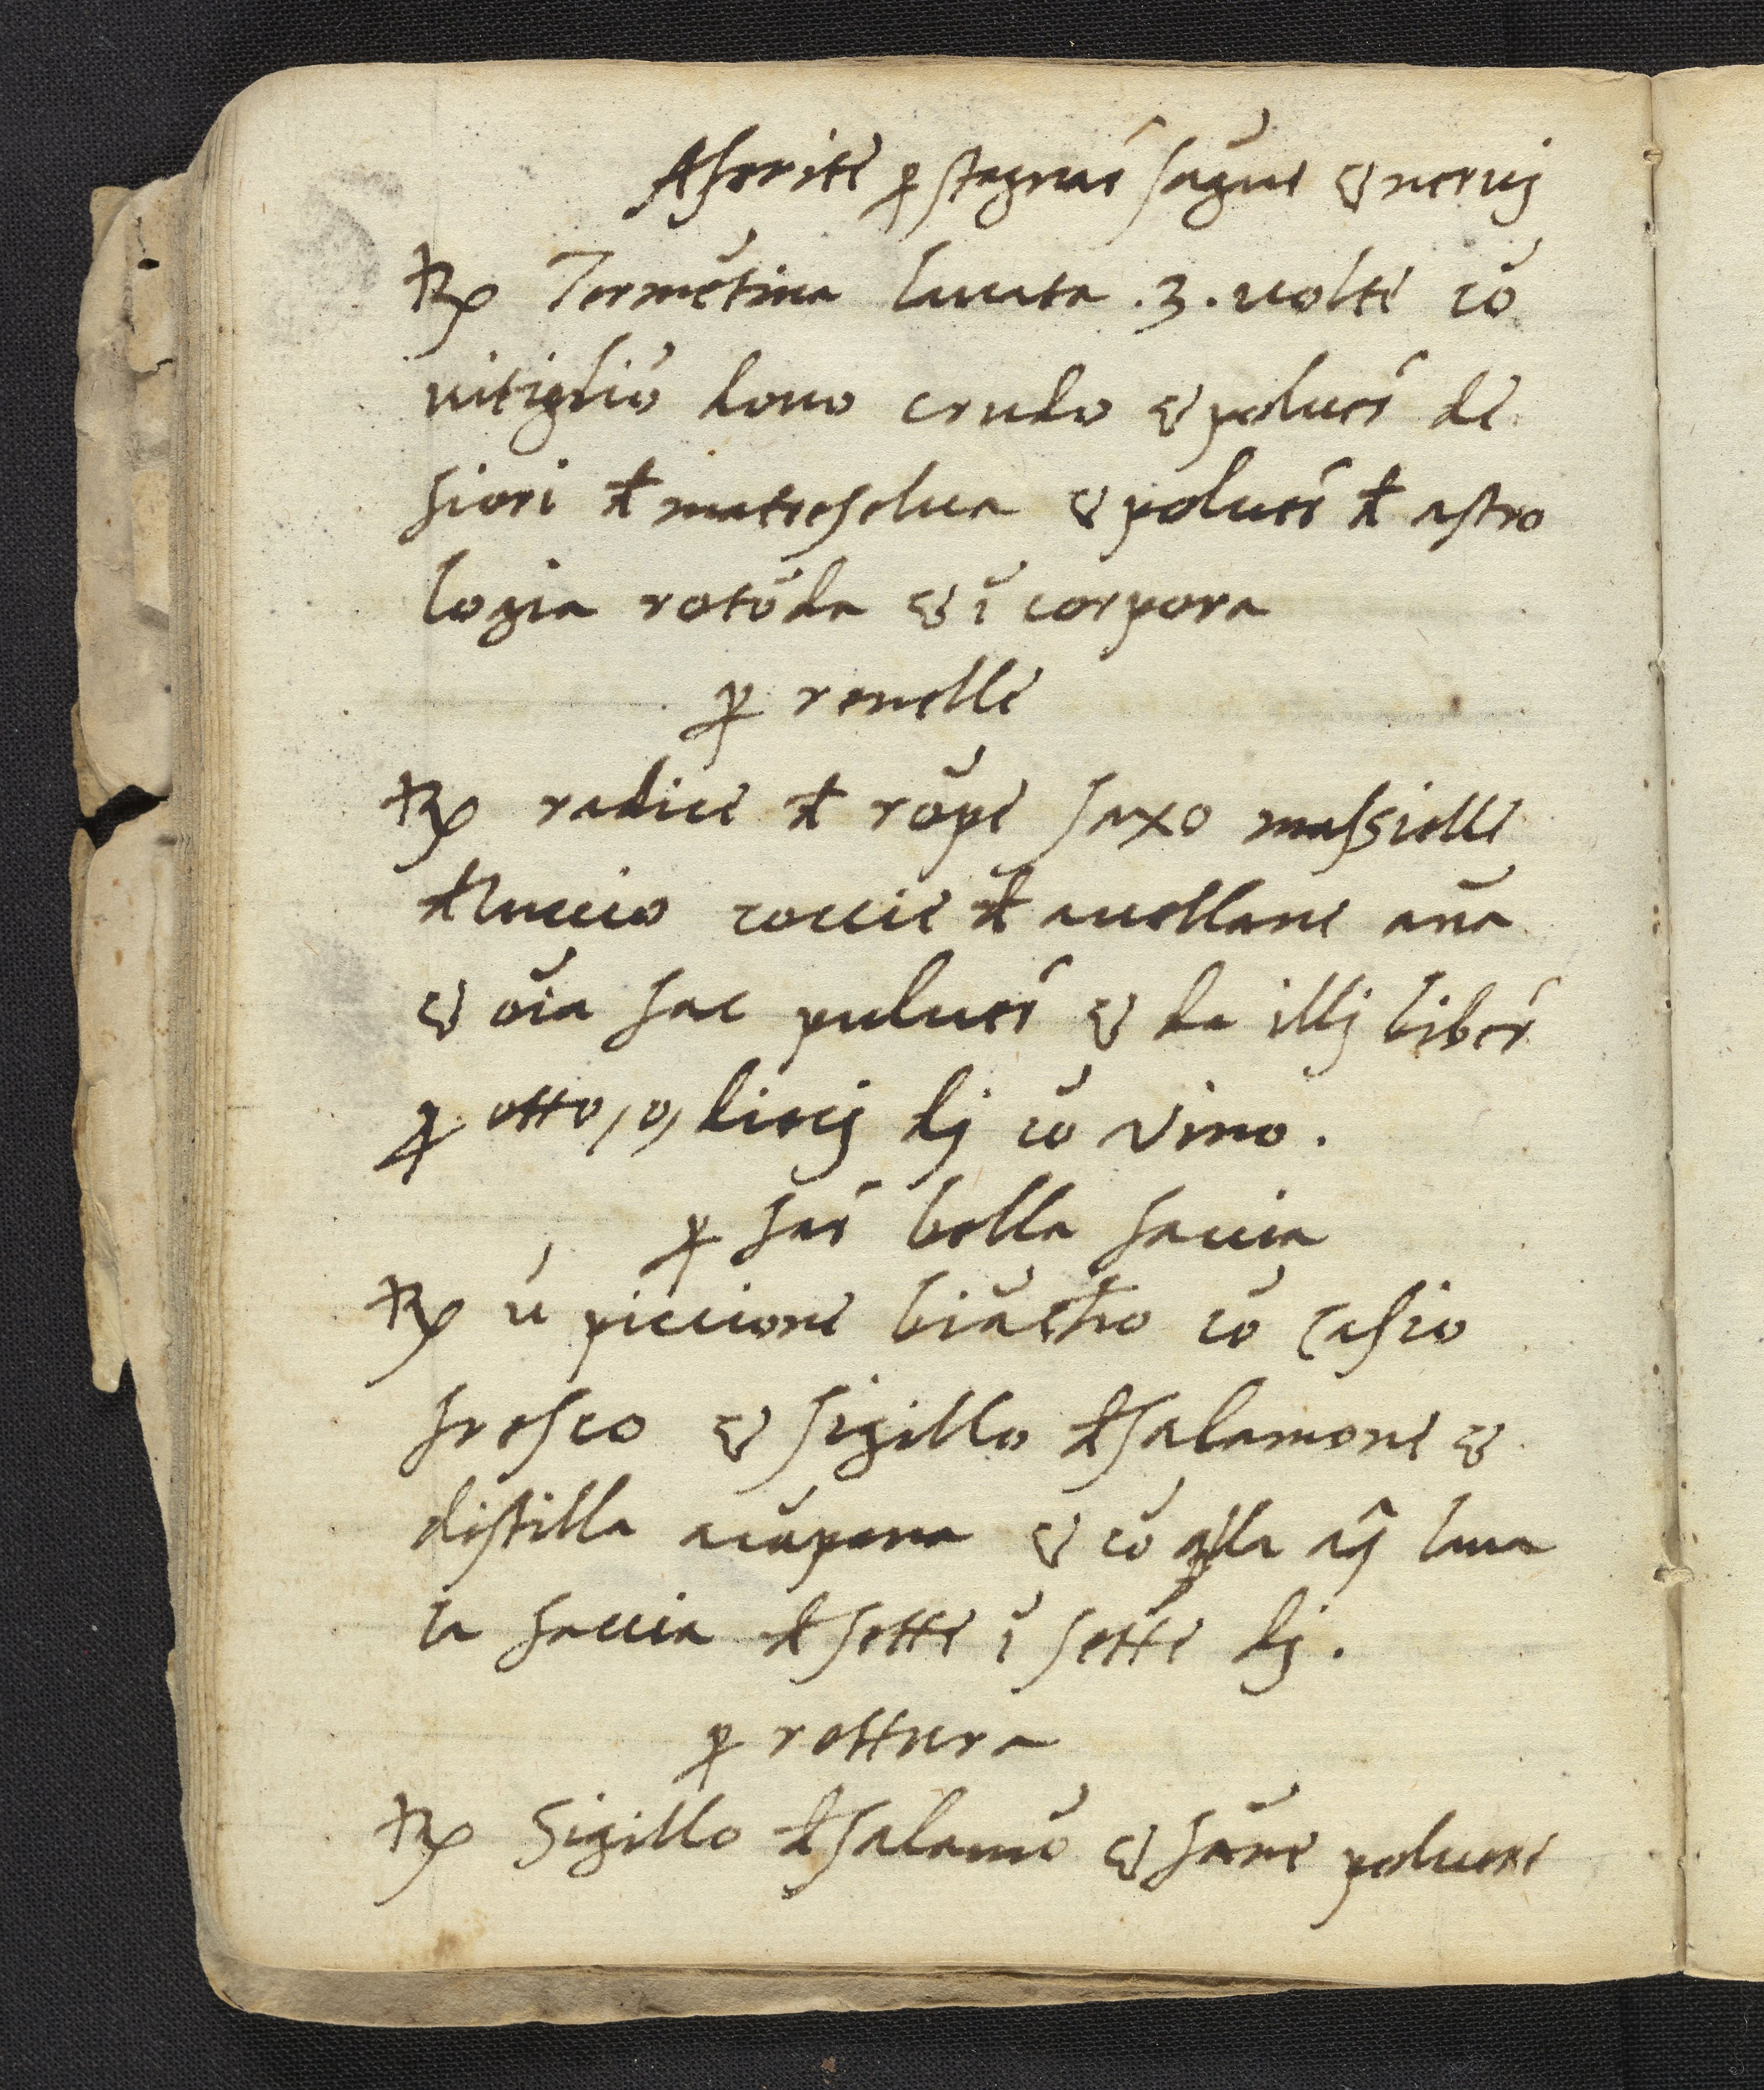 A feriti ꝑ stagnar̃ sãgue & neruj
℞ Termẽtina lauata .3. uolte cõ
uitigliõ douo crudo & poluer̃ de
fiori đ matreselua & poluer̃ đ astro
logia rotõda & ĩ corpora
ꝑ renelle
℞ radice đ rõpe saxo massielle
đ luccio coccie đ auellane anã
& oĩa fac puluer̃ & da illj biber̃
ꝑ otto, o, diecj dj cõ vino.
ꝑ far̃ bella faccia
℞ ũ piccione biãcho cõ casio
fresco & sigillo đ salamone &
distilla a cãpana & cõ q̃lla aq̃ laua
la faccia đ sette ĩ sette dj.
ꝑ rottura
℞ Sigillo đ salamõ & fãne poluere